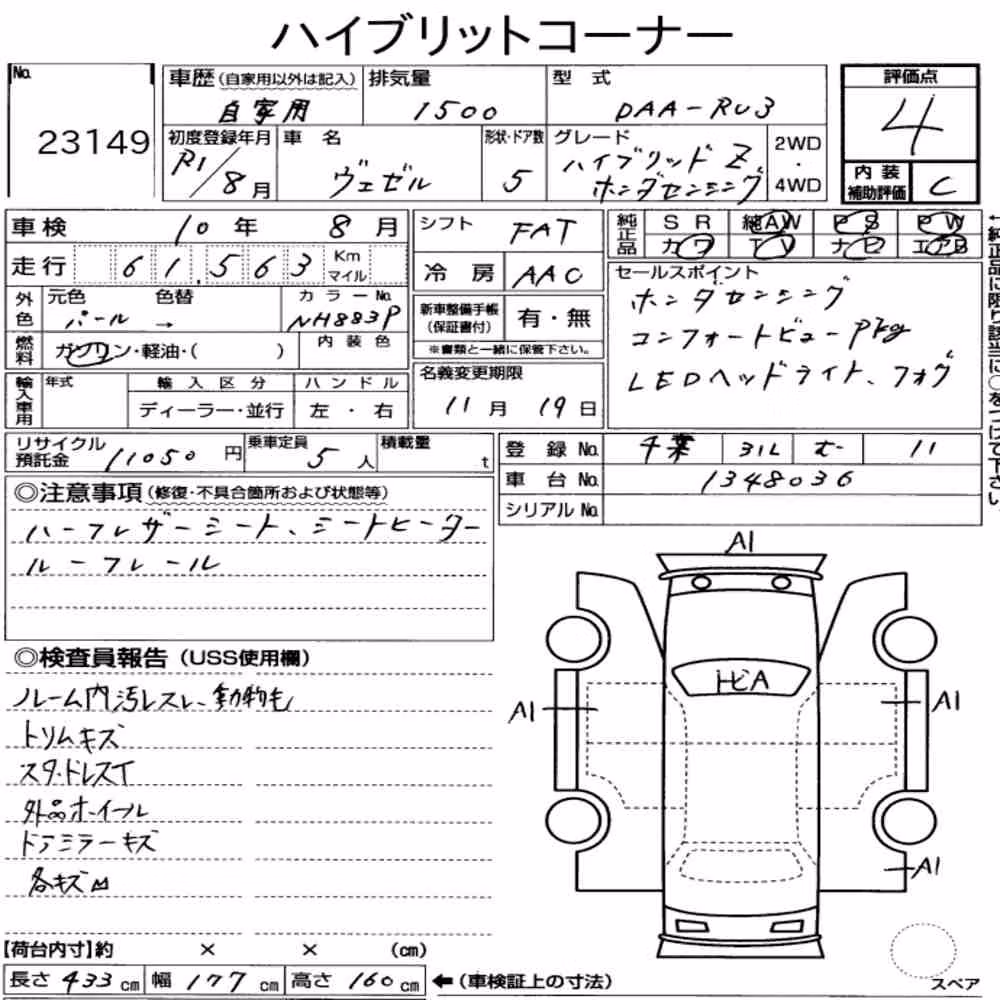 ハイブリットコーナー
No. 23149
車歴(自家用以外は記入) 自家用
排気量 1500
型式 DAA-RU3
評価点 4
初度登録年月 R1/8月
車名 ヴェゼル
形状・ドア数 5
グレード ハイブリッドZ
ホンダセンシング
2WD・4WD
内装補助評価 C
車検 10年 8月
シフト FAT
純正品 SR 純AW PS PW
カワ TV ナビ エアB
走行 61,563 Km マイル
冷房 AAC
セールスポイント
ホンダセンシング
コンフォートビューPkg
LEDヘッドライト、フォグ
外色 元色 パール → 色替 カラーNo. NH883P
新車整備手帳(保証書付) 有・無
※書類と一緒に保管下さい。
燃料 ガソリン・軽油・( ) 内装色
名義変更期限 11月 19日
輸入車用 年式 輸入区分 ハンドル
ディーラー・並行 左・右
←純正品に限り該当に○をつけて下さい
リサイクル預託金 11050円
乗車定員 5人
積載量 t
登録No. 千葉 31L む 11
車台No. 1348036
シリアルNo.
◎注意事項(修復・不具合箇所および状態等)
ハーフレザーシート、シートヒーター
ルーフレール
◎検査員報告(USS使用欄)
ルーム内汚レスレ、動物毛
トリムキズ
スタ.ドレスT
外品ホイール
ドアミラーキズ
各キズ凹
A1
トビA
A1
A1
A1
スペア
【荷台内寸】約 × × (cm)
長さ 433cm 幅 177cm 高さ 160cm ←(車検証上の寸法)